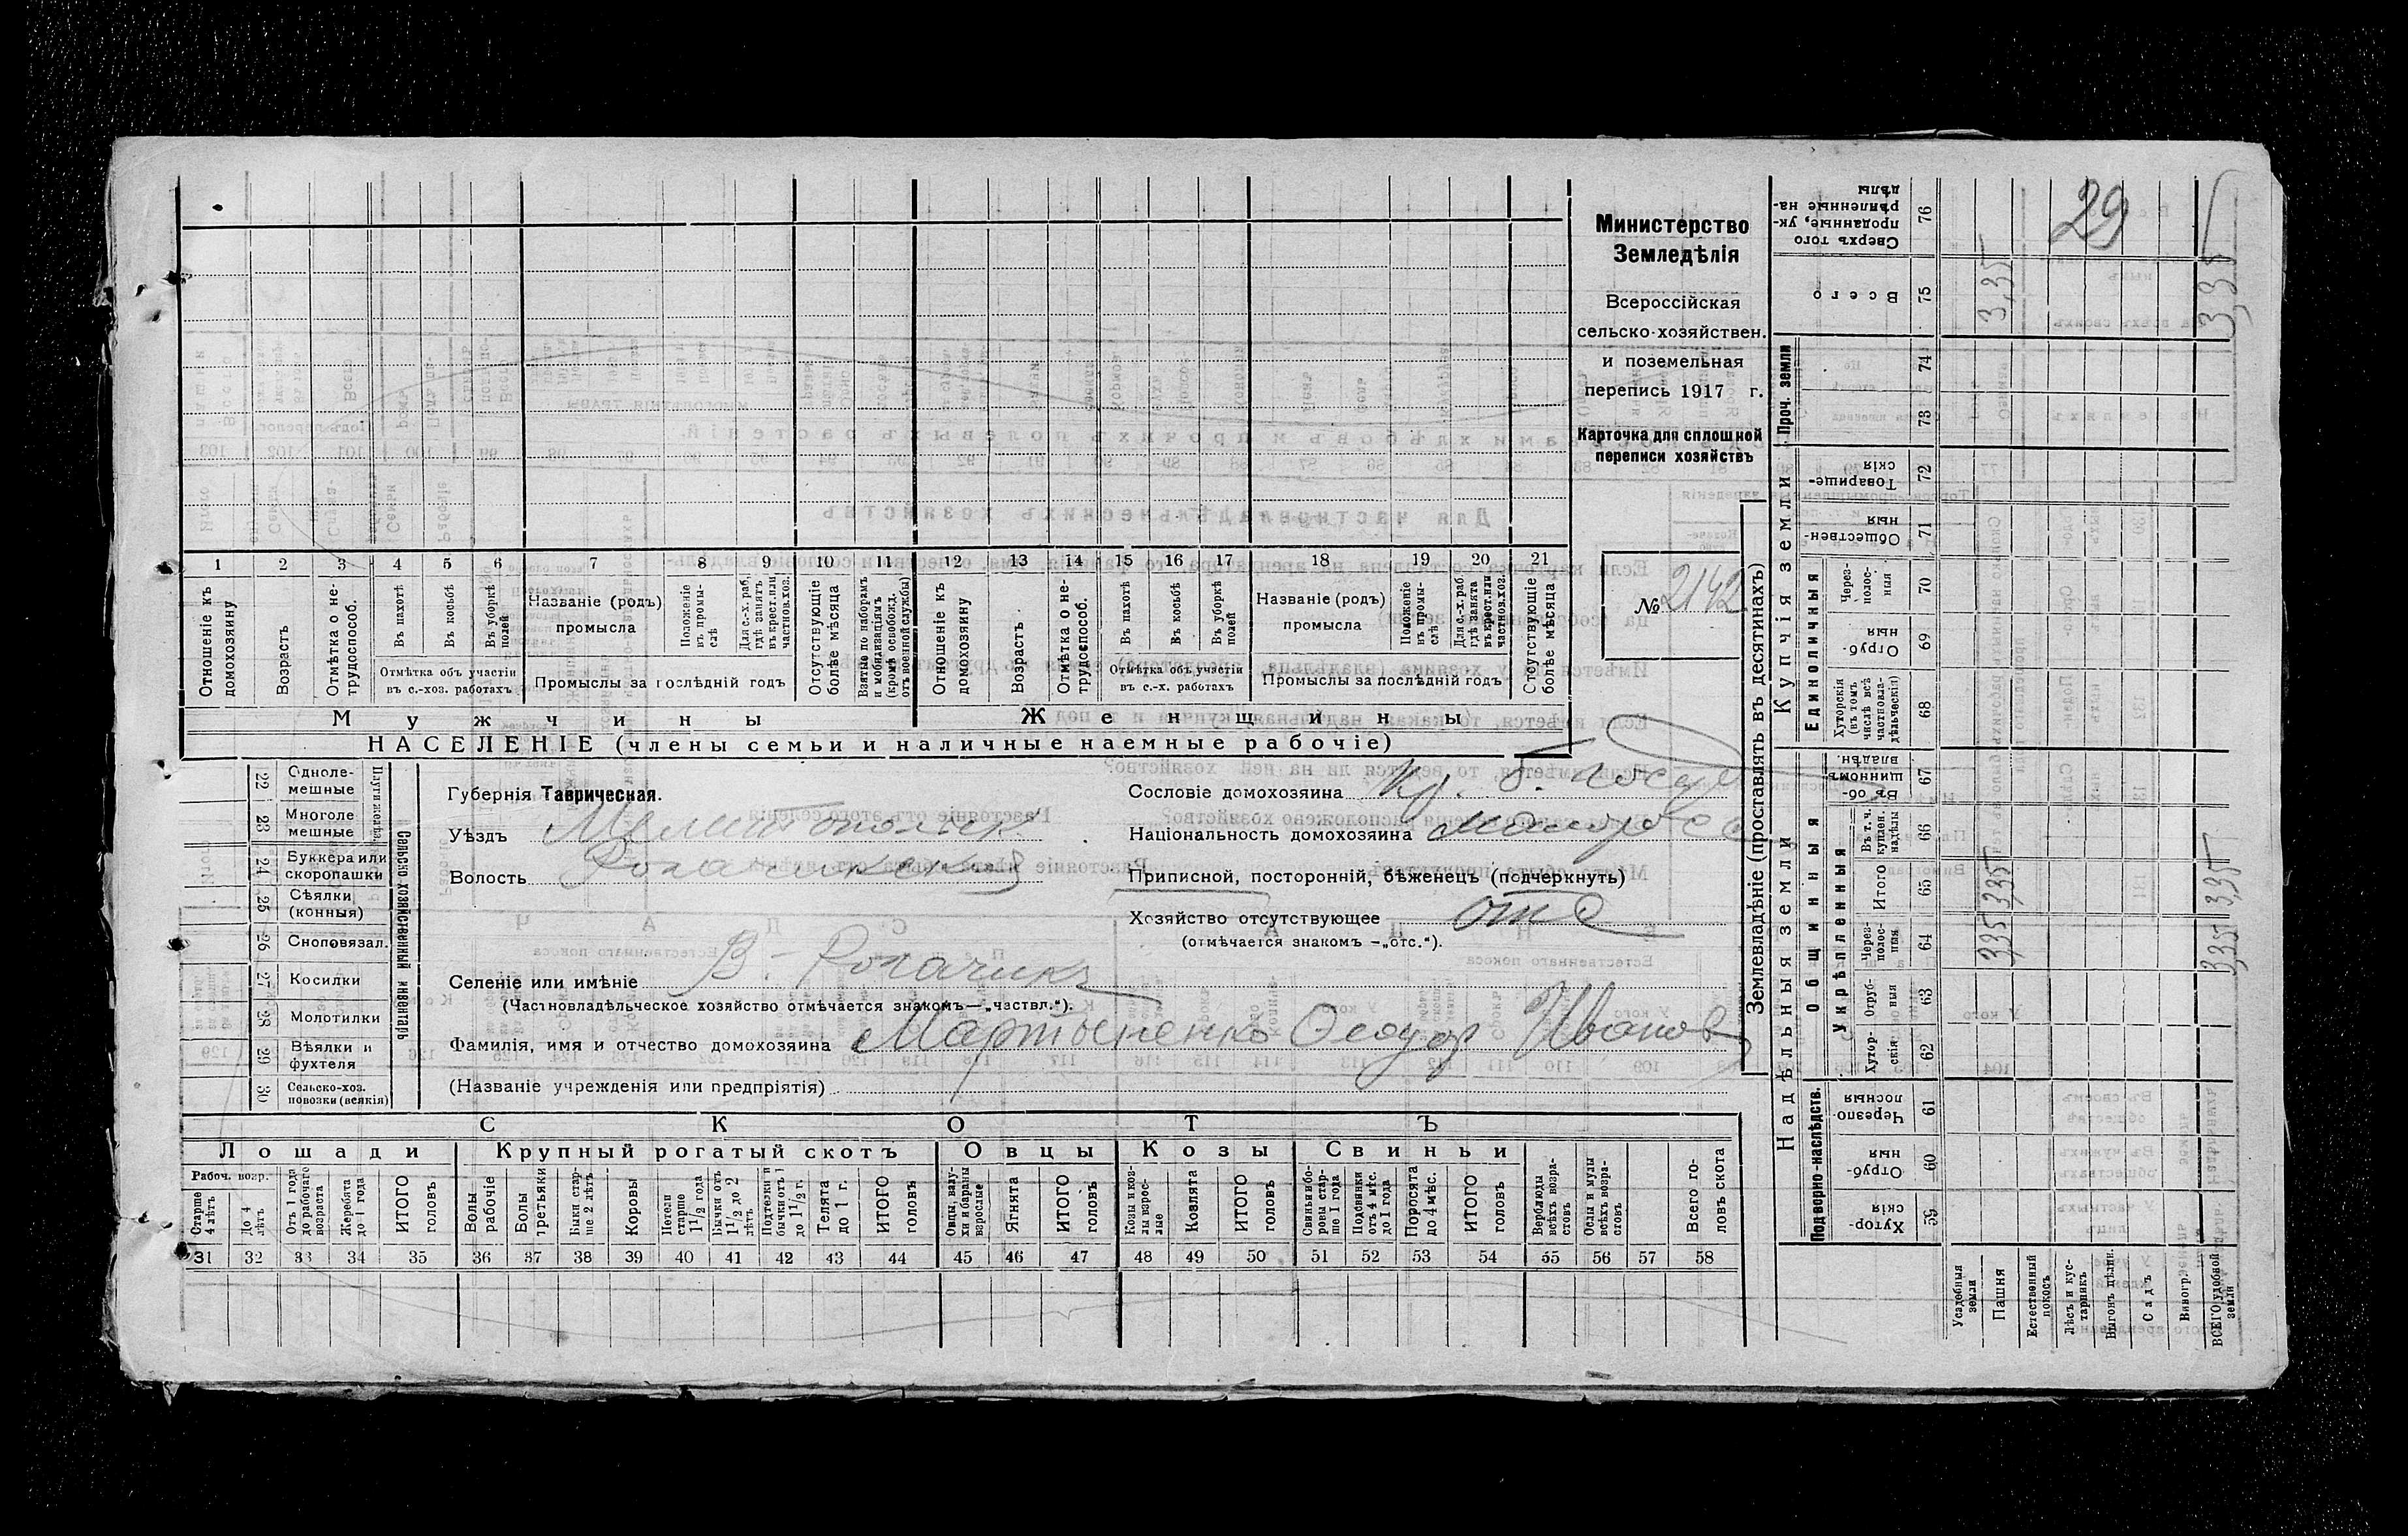 29
Министерство
Земледѣлія
Всероссійская
сельско-хозяйствен.
и поземельная
перепись 1917 г.
Карточка для сплошной
переписи хозяйствъ
№ 2142
1 2 3 4 5 6 7 8 9 10 11 12 13 14 15 16 17 18 19 20 21
Отношеніе къ домохозяину
Возрастъ
Отмѣтка о не-трудоспособ.
Въ пахотѣ
Въ косьбѣ
Въ уборкѣ полей
Отмѣтка объ участіи
въ с.-хоз. работахъ
Названіе (родъ)
промысла
Положеніе въ промы-слѣ
Для с.-х. раб, гдѣ занятъ въ крест. или частнов. хоз.
Промыслы за послѣдній годъ
Отсутствующіе болѣе мѣсяца
Взятые по наборамъ и мобилизаціямъ (кромѣ освобожд. отъ военной службы)
Отношеніе къ домохозяину
Возрастъ
Отмѣтка о не-трудоспособ.
Въ пахотѣ
Въ косьбѣ
Въ уборкѣ полей
Отмѣтка объ участіи
въ с.-х. работахъ
Названіе (родъ)
промысла
Положеніе въ промы-слѣ
Для с.-х. раб. гдѣ занята въ крест. или частнов. хоз.
Промыслы за послѣдній годъ
Отсутствующіе болѣе мѣсяца
Мужчины
Женщины
НАСЕЛЕНІЕ (члены семьи и наличные наемные рабочіе)
Сельско-хозяйственный инвентарь
Плуги желѣз.
22 Одноле-мешные
23 Многоле мешные
24 Буккера или скоропашки
25 Сѣялки (конныя)
26 Сноповязал.
27 Косилки
28 Молотилки
29 Вѣялки и фухтеля
30 Сельско-хоз. повозки (всякія)
Губернія Таврическая.
Уѣздъ Мелитопольск
Волость Рогачикская
Селеніе или имѣніе В.-Рогачикъ
(Частновладѣльческое хозяйство отмѣчается знакомъ—„частвл.“).
Фамилія, имя и отчество домохозяина Мартыненко Ѳеодор Иванов
(Названіе учрежденія или предпріятія)
Сословіе домохозяина Кр. б. госуд
Національность домохозяина малорос
Приписной, посторонній, бѣженецъ (подчеркнуть)
Хозяйство отсутствующее отс
(отмѣчается знакомъ —„отс.“).
СКОТЪ
Лошади
Крупный рогатый скотъ
Овцы
Козы
Свиньи
Рабоч. возр.
Старше 4 лѣтъ
До 4 лѣтъ
Отъ 1 года до рабочаго возраста
Жеребята до 1 года
ИТОГО головъ
Волы рабочіе
Волы третьяки
Быки стар-ше 2 лѣтъ
Коровы
Нетели старше 1 1/2 года
Бычки отъ 1 1/2 до 2 лѣтъ
Подтелки и бычки отъ 1 до 1 1/2 г.
Телята до 1 г.
ИТОГО головъ
Овцы, валу-хи и бараны взрослые
Ягнята
ИТОГО головъ
Козы и коз-лы взрос-лые
Козлята
ИТОГО головъ
Свиньи и бо-ровы стар-ше 1 года
Подсвинки отъ 4 мѣс. до 1 года
Поросята до 4 мѣс.
ИТОГО головъ
Верблюды всѣхъ возра-стовъ
Ослы и мулы всѣхъ возра-стовъ
Всего го-ловъ скота
31 32 33 34 35 36 37 38 39 40 41 42 43 44 45 46 47 48 49 50 51 52 53 54 55 56 57 58
Землевладѣніе (проставлять въ десятинахъ)
Надѣльныя земли
Купчія земли
Проч. земли
Подворно-наслѣдств.
Общинныя
Укрѣпленныя
Единоличныя
59 Хутор-скія
60 Отруб-ныя
61 Черезпо-лосныя
62 Хутор-скія
63 Отруб-ныя
64 Через-полос-ныя 3,35 3,35
65 Итого 3,35 3,35
66 Въ т. ч. куплен. надѣлы
67 Въ об-щинномъ владѣн.
68 Хуторскія (въ томъ числѣ всѣ частновла-дѣльческія)
69 Отруб-ныя
70 Через-полос-ныя
71 Обществен-ныя
72 Товарище-скія
73
74
75 Всего 3,35 3,35
76 Сверхъ того проданные, ук-рѣпленные на-дѣлы
Усадебныя земли
Пашня
Естественный покосъ
Лѣсъ и кус-тарникъ
Выгонъ цѣлин.
Садъ
Виногр.
ВСЕГО удобной земли